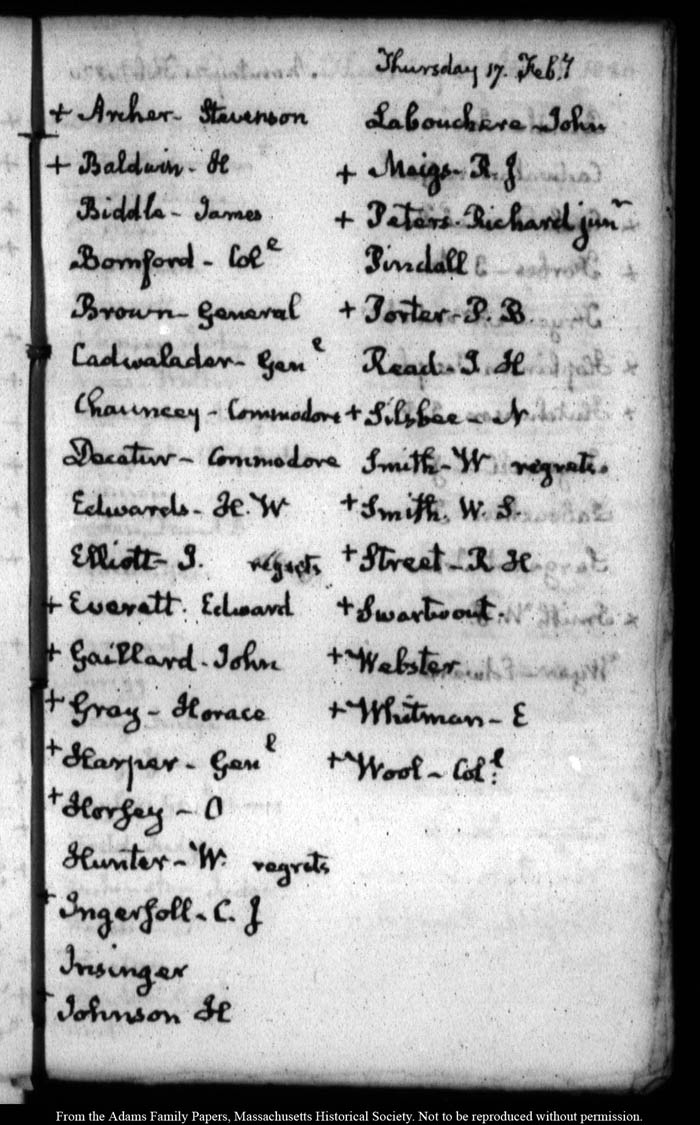 Thursday 17. Feb.y
+ Archer - Stevenson
+ Baldwin - H
Biddle - James
Bomford - Col e
Brown - General
Cadwalader - Gen e
Chauncey - Commodore
Decatur - Commodore
Edwards - H. W
Elliott - J. regrets
+ Everett. Edward
+ Gaillard - John
+ Gray - Horace
+ Harper - Gen l
+ Horsey - O
Hunter - W. regrets
+ Ingersoll - C. J
Insinger
+ Johnson H
Labouchere - John
+ Meigs - R. J
+ Peters - Richard jun r
Pindall
+ Porter - P. B.
Read - J. H
+ Silsbee - N
Smith - W regrets.
+ Smith. W. S.
+ Street - R H
+ Swartwout.
+ Webster
+ Whitman - E
+ Wool - Col l.
From the Adams Family Papers, Massachusetts Historical Society. Not to be reproduced without permission.